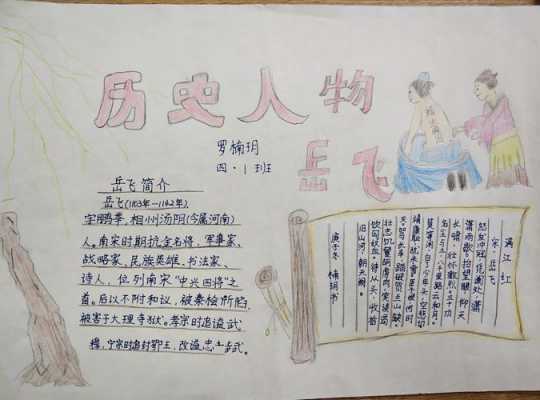 历史人物
岳飞
罗楠玥
四·1班
岳飞简介
岳飞(1103年—1142年)
字鹏举,相州汤阴(今属河南)
人。南宋时期抗金名将、军事家、
战略家、民族英雄、书法家、
诗人,位列南宋“中兴四将”之
首。后以不附和议,被秦桧所陷,
被害于大理寺狱。孝宗时追谥武
穆,宁宗时追封鄂王,改谥忠武。
满江红
宋 岳飞
怒发冲冠,凭阑处、潇
潇雨歇。抬望眼,仰天
长啸,壮怀激烈。三十功
名尘与土,八千里路云和月。
莫等闲,白了少年头,空悲切。
靖康耻,犹未雪。臣子恨,何时
灭。驾长车,踏破贺兰山缺。
壮志饥餐胡虏肉,笑谈渴
饮匈奴血。待从头、收拾
旧山河,朝天阙。
庚子冬 楠玥书